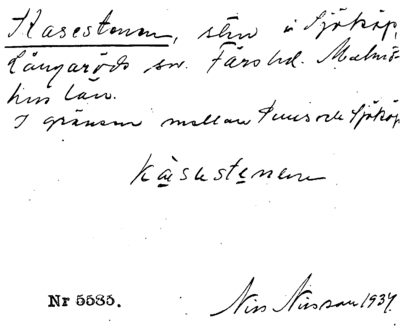 Kasestenen, sten i Sjököp,
Långaröds sn. Färs hd. Malmö-
hus län.
I gränsen mellan och Sjököp
Kàsestenen
Nr 5585.
Nils Nilsson 1937.